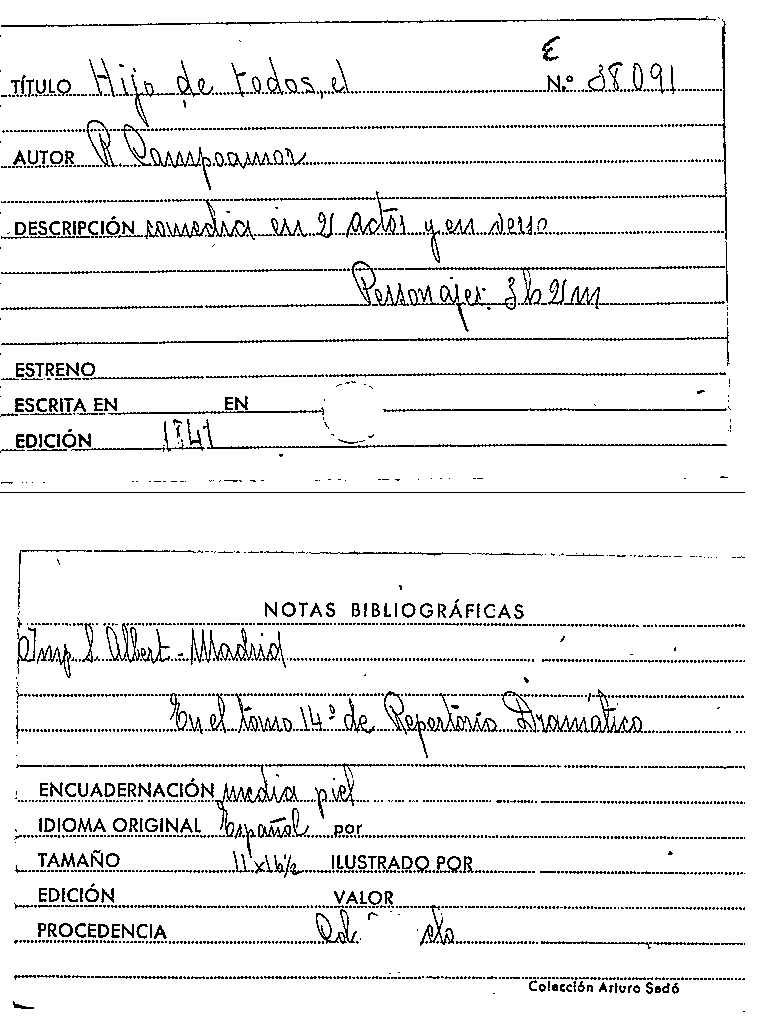 E
TÍTULO Hijo de todos, el N.º 38091
AUTOR R Campoamor
DESCRIPCIÓN comedia en 2 actos y en verso
Personajes: 3h 2m
ESTRENO
ESCRITA EN EN
EDICIÓN 1841
NOTAS BIBLIOGRÁFICAS
Imp S. Albert - Madrid
En el tomo 14º de Repertorio Dramático
ENCUADERNACIÓN media piel
IDIOMA ORIGINAL Español por
TAMAÑO 11 x 16½ ILUSTRADO POR
EDICIÓN VALOR
PROCEDENCIA
Colección Arturo Sedó